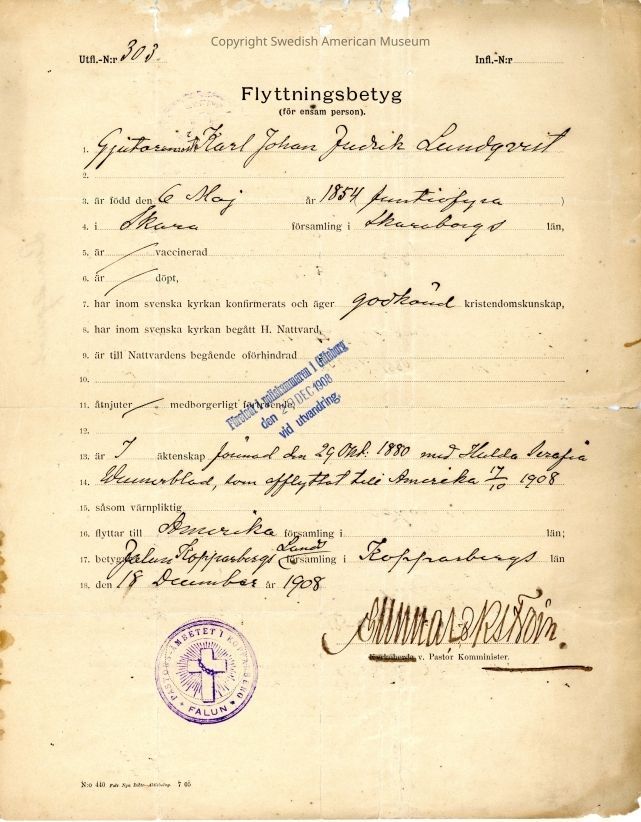 Copyright Swedish American Museum
Utfl.-N:r 303. Infl.-N:r
Flyttningsbetyg
(för ensam person).
1. Gjutaren Karl Johan Fredrik Lundqvist
2.
3. är född den 6 Maj år 1854 femtiofyra )
4. i Skara församling i Skaraborgs län,
5. är vaccinerad
6. är döpt,
7. har inom svenska kyrkan konfirmerats och äger godkänd kristendomskunskap,
8. har inom svenska kyrkan begått H. Nattvard,
9. är till Nattvardens begående oförhindrad
10.
Företedt i poliskammaren i Göteborg
den 29 DEC 1908
vid utvandring.
11. åtnjuter medborgerligt förtroende,
12.
13. är I äktenskap förenad den 29 Okt. 1880 med Hulda Serafia
14. Wennerblad, som afflyttat till Amerika 17/10 1908
15. såsom värnpliktig
16. flyttar till Amerika församling i län;
17. betygar Falun Kopparbergs Lands församling i Kopparbergs län
18. den 18 December år 1908
Kyrkoherde v. Pastor Komminister.
PASTORSÄMBETET I KOPPARBERG
FALUN
N:o 440 7 05